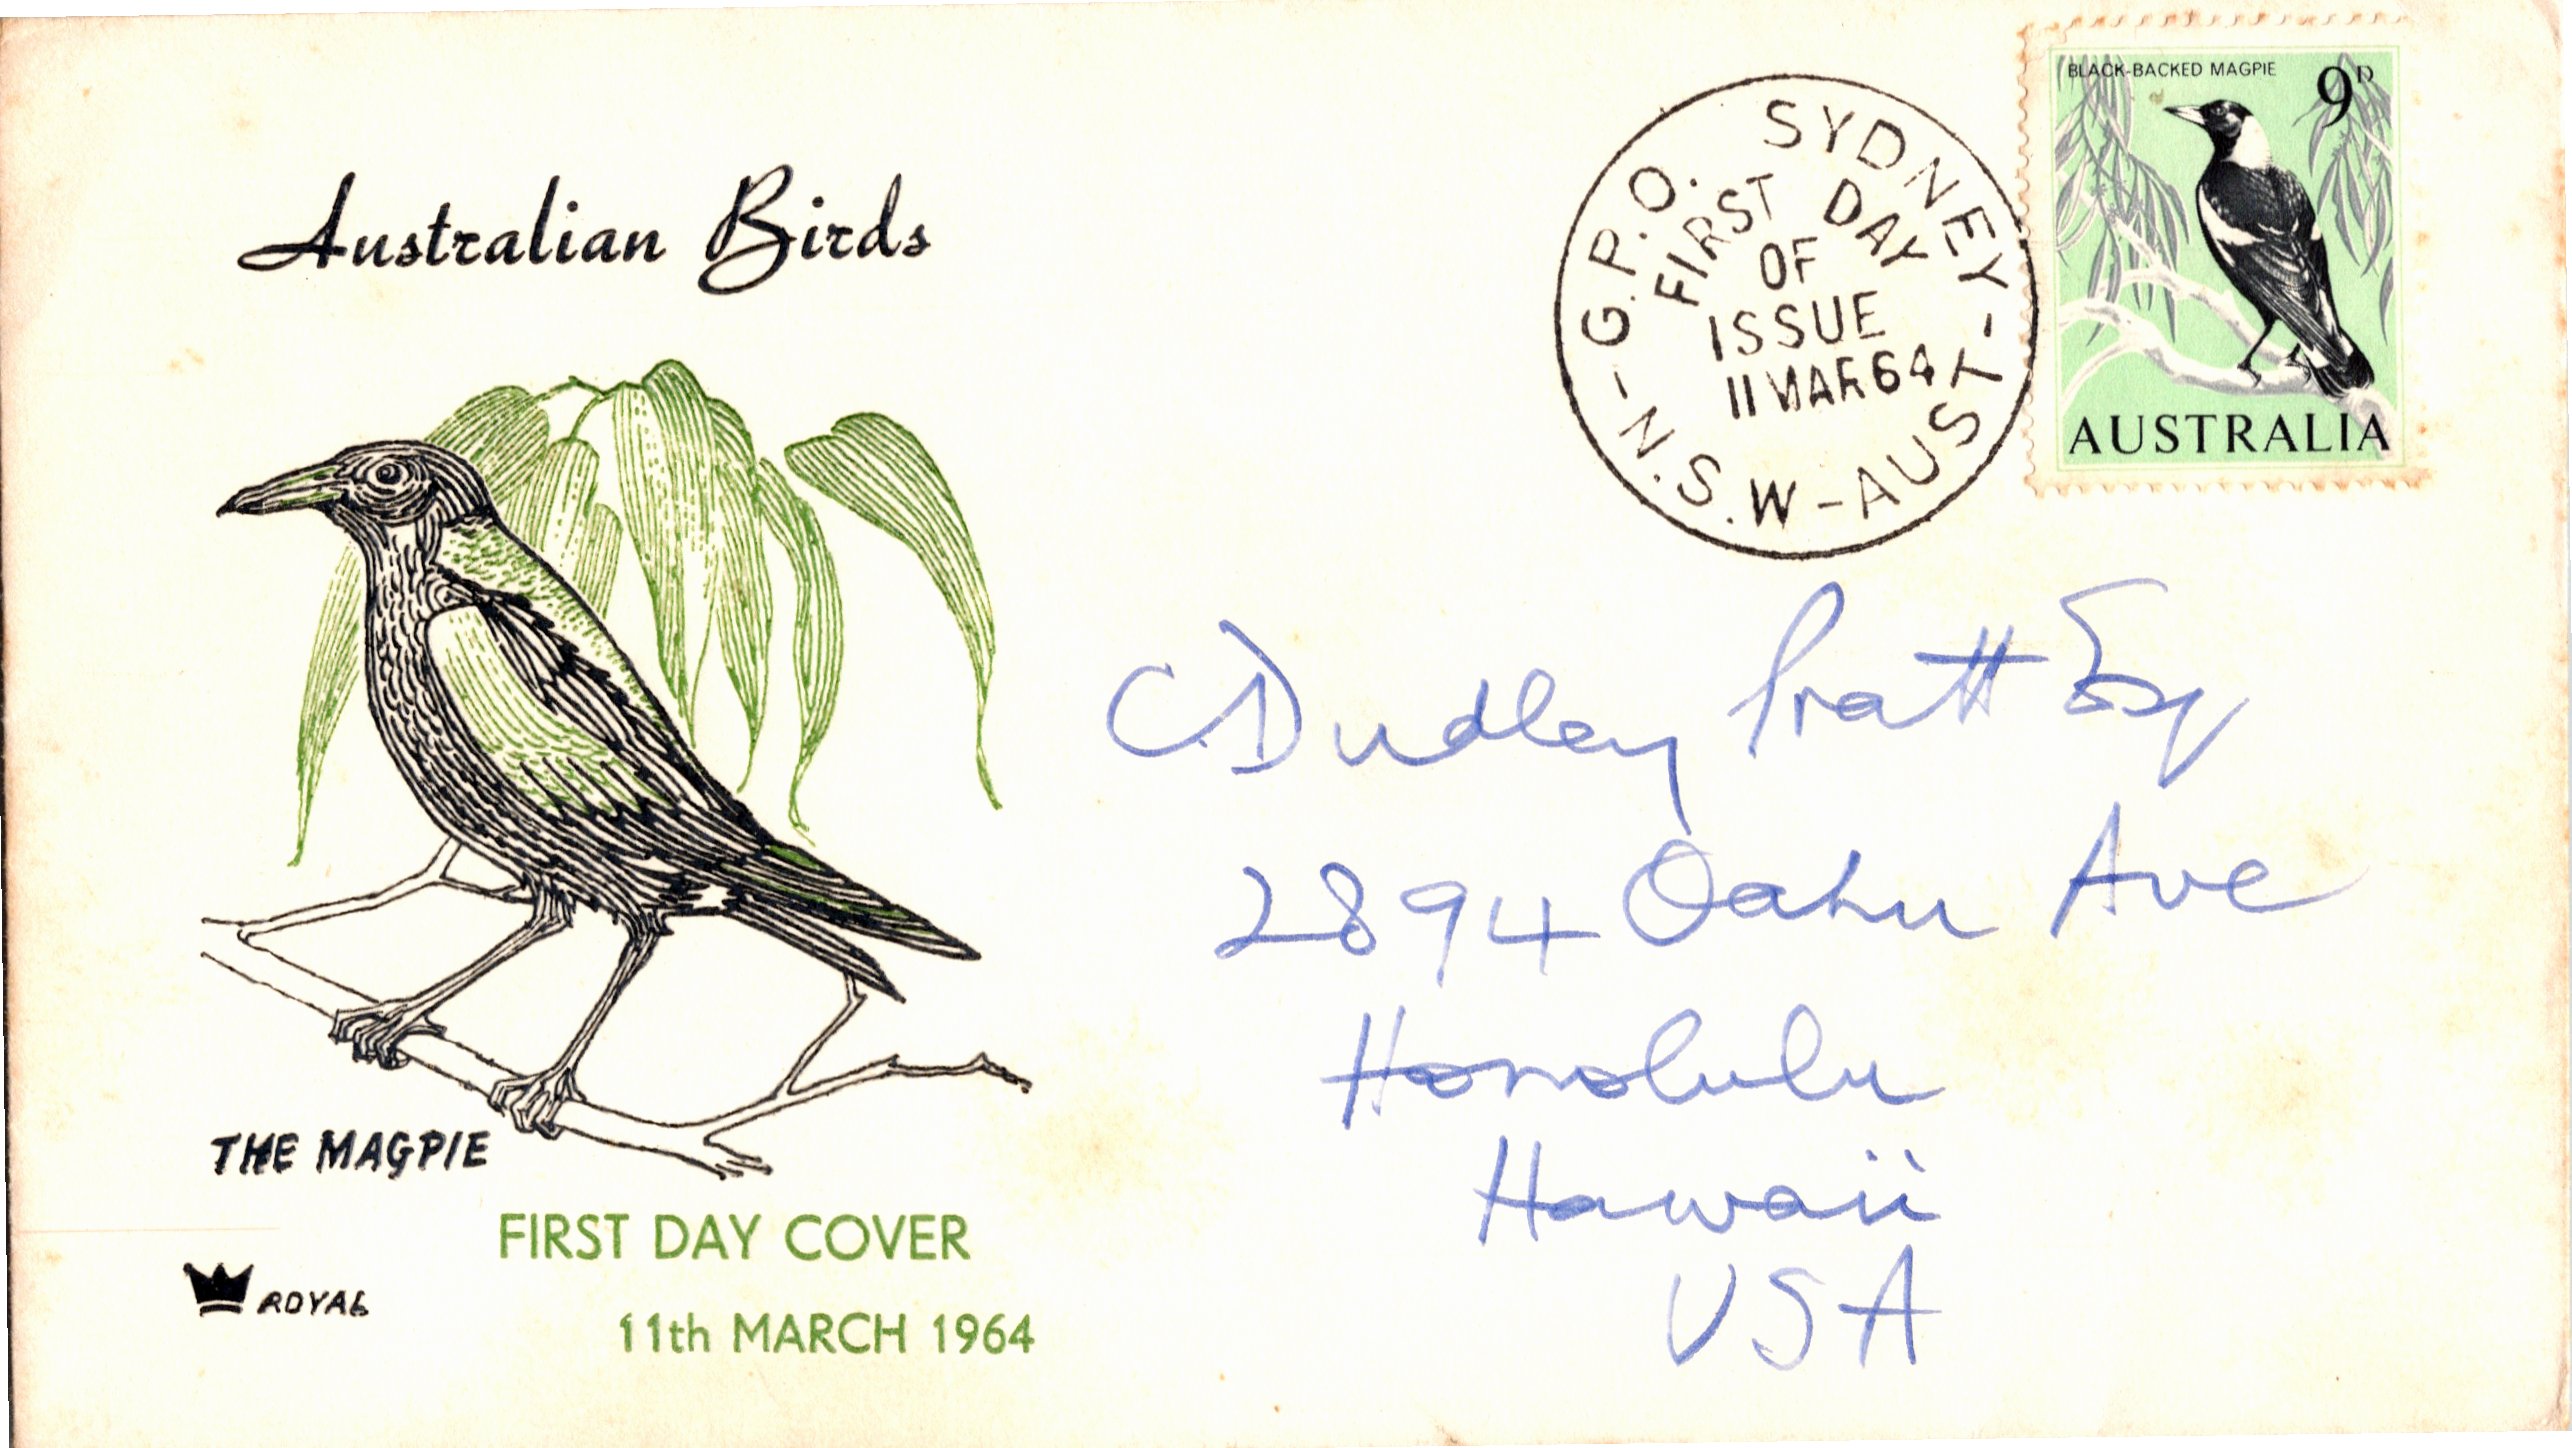 Australian Birds
G.P.O. SYDNEY-
-N.S.W-AUST-
FIRST DAY
OF
ISSUE
11 MAR 64
BLACK-BACKED MAGPIE
9D
AUSTRALIA
C. Dudley Pratt Esq
2894 Oahu Ave
Honolulu
Hawaii
USA
THE MAGPIE
FIRST DAY COVER
ROYAL
11th MARCH 1964